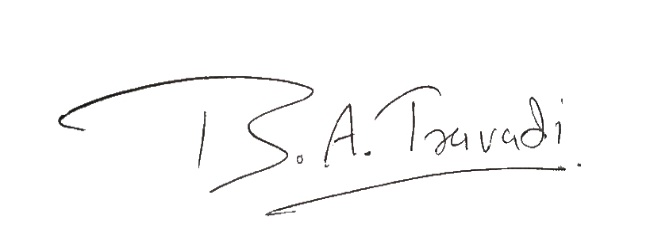 B. A. Travadi.